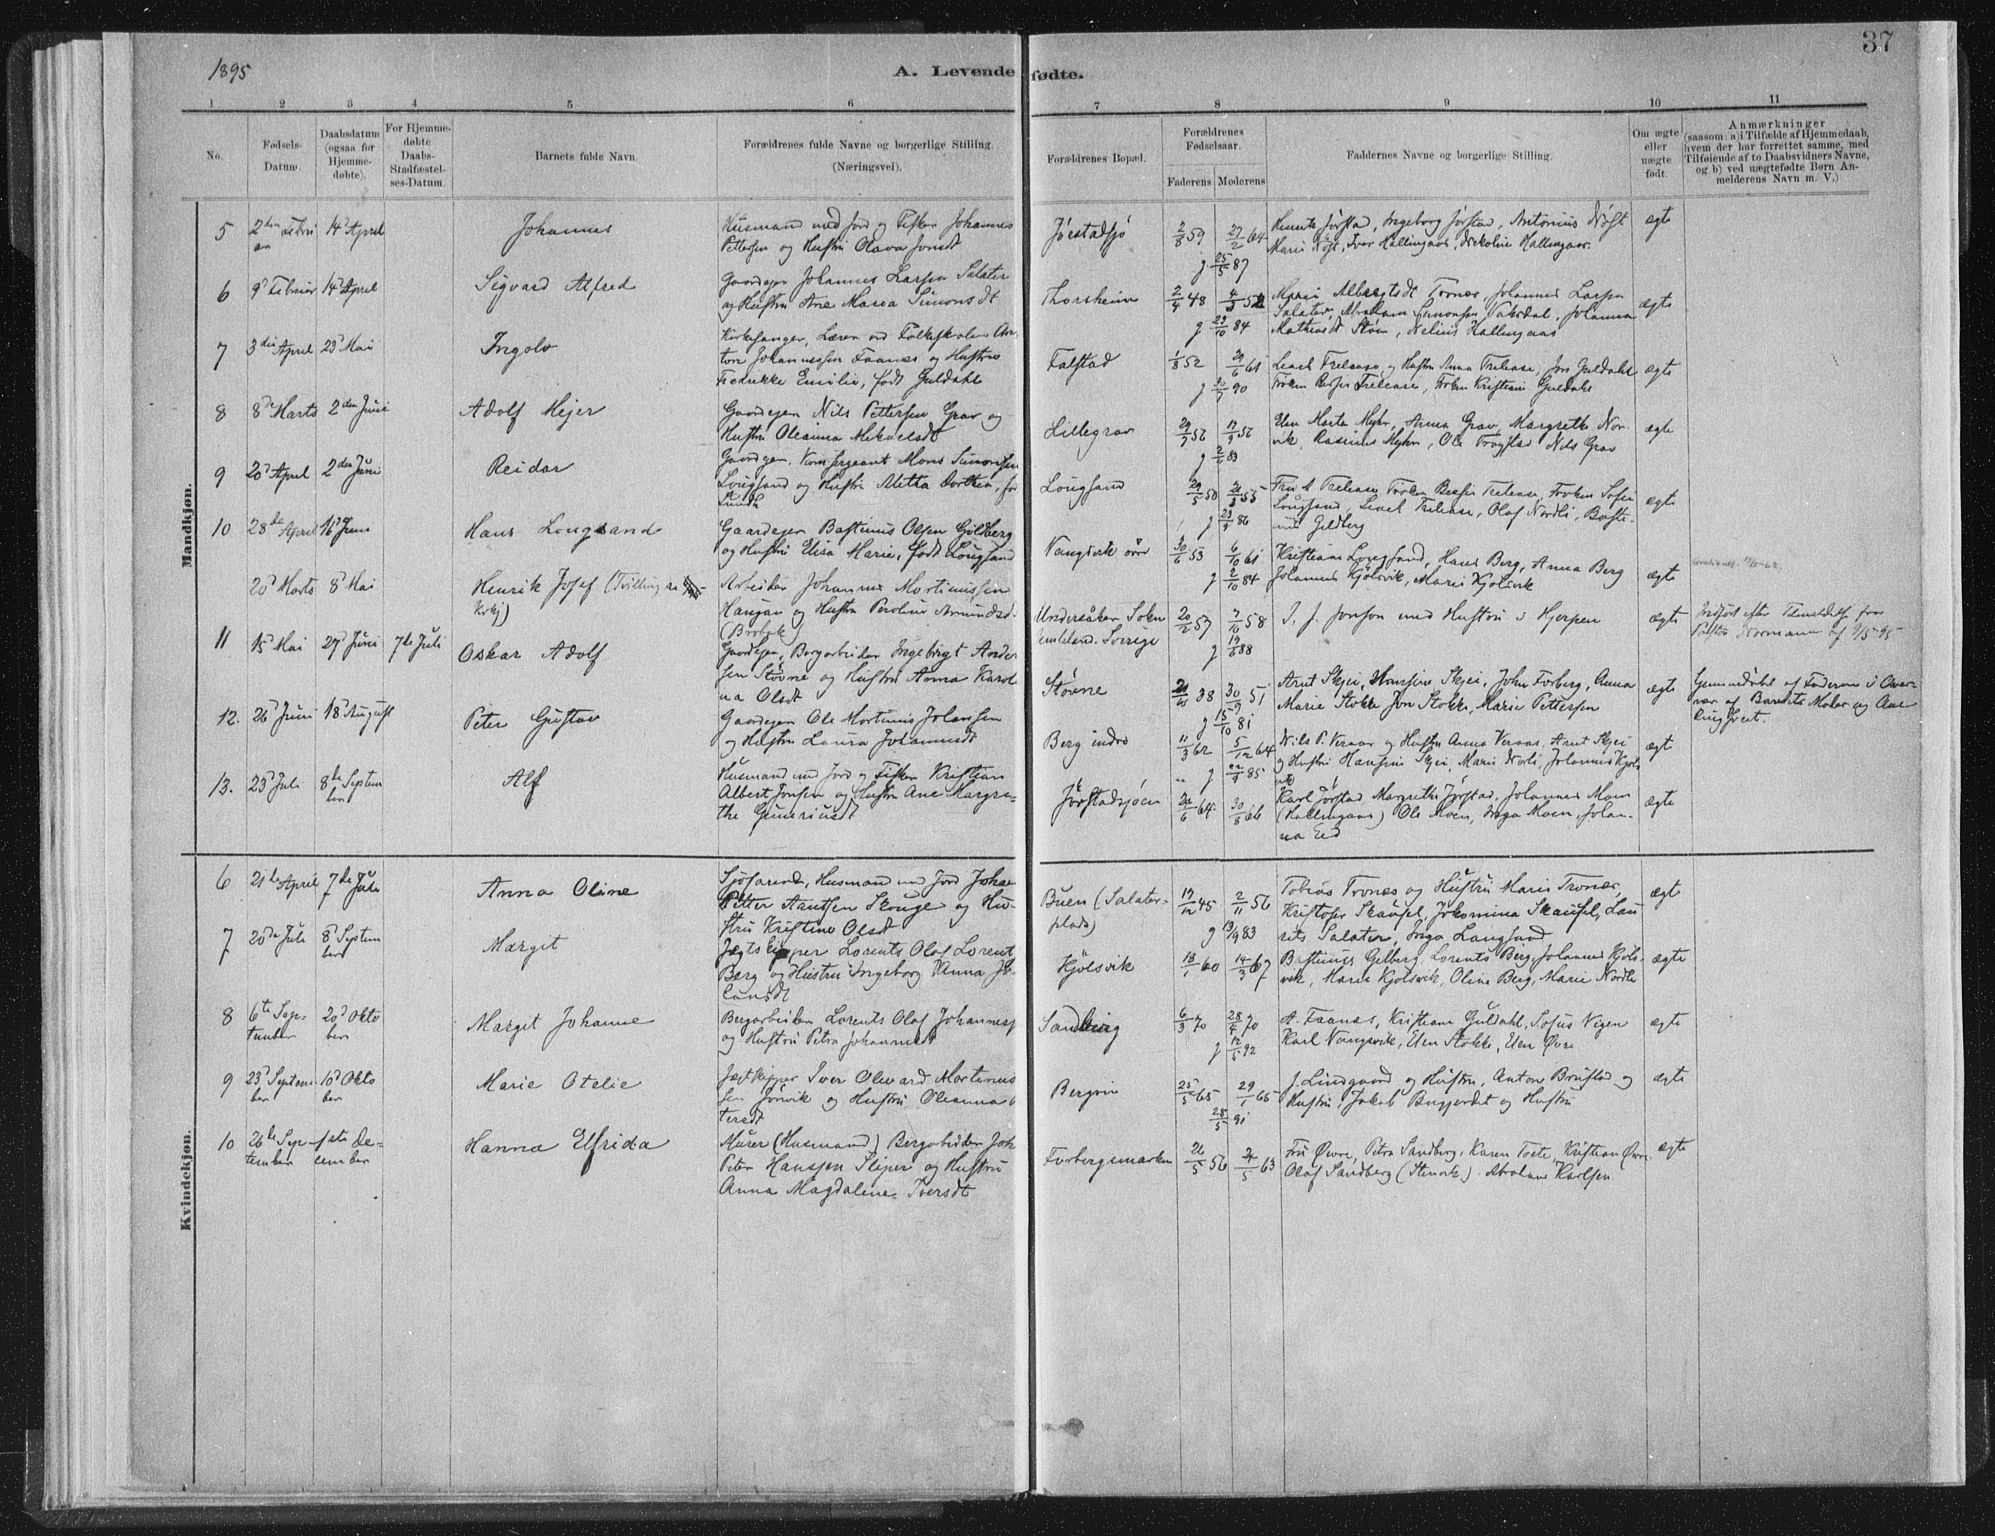 1895
37
A. Levende fødte.
1 2 3 4 5 6 7 8 9 10 11
No.
Fødsels-
Datum.
Daabsdatum
(ogsaa for
Hjemme-
døbte).
For Hjemme-
døbte
Daabs-
Stadfæstel-
ses-Datum.
Barnets fulde Navn.
Forældrenes fulde Navne og borgerlige Stilling.
(Næringsvei).
Forældrenes Bopæl.
Forældrenes
Fødselsaar.
Faderens Moderens
Faddernes Navne og borgerlige Stilling.
Om ægte
eller
uægte
født.
Anmærkninger
(saasom: a) i Tilfælde af Hjemmedaab,
hvem der har forrettet samme, med
Tilføiende af to Daabsvidners Navne,
og b) ved uægtefødte Børn An-
melderens Navn m. V.)
Mandkjøn.
5 14d April Johannes
Husmand med Jord og Fisker Johannes
Pettersen og Hustru Olava Jonsdt
2/8 59 27/2 64
25/5 87
Ingeborg Jørstad, Antonius Nøst
Marie Nøst, Iver Hallingaas, Nikoline Hallingaas
ægte
6 9d Februar 14d April Sigvard Alfred
Gaardeger Johannes Larsen Salater
og Hustru Ane Maria Simonsdt
Thorsheim
2/4 48
29/10 84
Marie Albregtsdt Trones, Johannes Larsen
Salater, Abraham Simonsen Vaksdal, Johanna
Mathiasdt Støen, Nelius Hallingaas
ægte
7 3die April 23d Mai Ingolv
Kirkesanger, Lærer ved Folkeskolen An-
ton Johannessen Faanes og Hustru
Fredrikke Emilie, født Guldahl
Falstad
1/8 52
90
og Hustru Anna Trelease, Guldahl
Frøken Trelease, Frøken Kristiane Guldahl
ægte
8 8de Marts 2den Juni Adolf Mejer
Gaardeger Nils Pettersen Grav og
Hustru Oleanna Mikalsdt
Lillegrav
83
Elen Marta Myhr, Anna Grav, Margrethe Nor-
vik, Rasmus Myhr, Ole Trøgstad Nils Grav
ægte
9 20d April 2den Juni Reidar
Gaardeger, Sergeant Mons Simonsen
Longsand og Hustru Aletta Dorthea, født
Lunde
Longsand
29/5 50
86
Fru A Trelease, Frøken Trelease, Frøken Sofie
Longsand, Trelease, Olaf Nordli, Basti-
nus Geldberg
ægte
10 28de April 16d Juni Hans Longsand
Gaardeger Bastinus Olsen Gjeldberg
og Hustru Elisa Marie, født Longsand
Vangsvik øvre
30/6 53 6/10 61
84
Kristiane Longsand, Hans Berg, Anna Berg
Johannes Kjølsvik, Marie Kjølsvik
ægte
20d Marts 8d Mai Henrik Josef
Arbeider Johannes Mortinussen
Haugan og Hustru Peroline Amundsdt
Undersåker Sokn
Jemteland. Sverige
20/2 57 7/10 58
19/6 88
J. J. Jonson med Hustru i Hjerpen
ægte
Indført efter Tilmeldelse fra
Pastor Normann af 9/5-95
11 15d Mai 27d Juni 7de Juli Oskar Adolf
Gaardeger, Bergarbeider Ingebrigt Ander-
sen Støvne og Hustru Anna Karoli-
na Olsdt
Støvne
38 30/9 51
15/10 81
Arnt Skjei, Hansine Skjei, John Forberg, Anna
Marie Stokke Jon Stokke, Marie Pettersen
ægte
Hjemmedøbt af Faderen i Over-
vær af Barnets Moder og
12. 26d Juni 18d August Peter Gustav
Gaardeger Ole Mortinus Johansen
og Hustru Laura Johannesdt
Berg indre
11/3 62 5/12 64
85
Nils P. Veraas og Hustru Anna Veraas, Arnt Skjei
og Hustru Hansine Skjei, Marie Nordli, Johannes Kjøls-
vik
ægt
13. 23d Juli 8de Septem
ber
Alf
Husmand med Jord og Fisker Kristian
Albert Jonsen og Hustru Ane Margre-
the Guneriusdt
Jørstadsjøen
64. 30/8 66
Karl Jørstad, Margrethe Jørstad, Johannes Moen
(Hallingaas) Ole Moen, Inga Moen, Johan-
na Eid
ægte
Kvindekjøn.
6 21de April 7de Juli Anna Oline
Sjøfarende, Husmand med Jord Johan
Petter Arntsen Skouge og Hu-
stru Kristine Olsdt
Buen (Salater-
plads)
19/12 45 2/11 56
13/9 83
Tobias Trones og Hustru Marie Trones,
Kristofer Skaufel, Jokomina Skaufel, Lau
rits Salater, Inga Langsand
ægte
7 20de Juli 8d Septem
ber
Margit
Jægtskipper Lorents Olaf Lorents
Berg og Hustru Ingeborg Anna Jo-
hansdt
Kjølsvik
18/1 60 14/3 67
Bastinus Gelberg, Lorents Berg, Johannes Kjøls-
vik, Marie Kjølsvik, Oline Berg, Marie Nordli
ægte
8 6te Sep-
tember
20d Okto
ber
Margit Johanne
Bergarbeider Lorents Olaf Johannes
og Hustru Petra Johannesdt
Sandberg
6/3 70 28/4 70
12/5 92
A. Faanes, Kristiane Guldahl, Sofus Vigen
Karl Vangsvik, Elen Stokke, Elen Øvre
ægte
9 23d Septem-
ber
10d Okto
ber
Marie Otelie
Jægtskipper Iver Olevard Mortinus
sen Jørvik og Hustru Oleanna
Bergvin
25/5 65 29/1 65
28/5 91
J. Lindgaard og Hustru, Anton Brustad og
Hustru, Jakob Buggerdet og Hustru
ægte
10 26de Sep-
tember
1ste De-
cember
Hanna Elfrida
Murer (Husmand) Bergarbeider Joh
Peter Hanssen Sliper og Hustru
Anna Magdalene Iversdt
Forbergsmarken
56 63
Fru Øvre, Petra Sandberg, Karen Tvete, Kristian Øvre
Olaf Sandberg (Stenvik). Abraham Karlsen
ægte